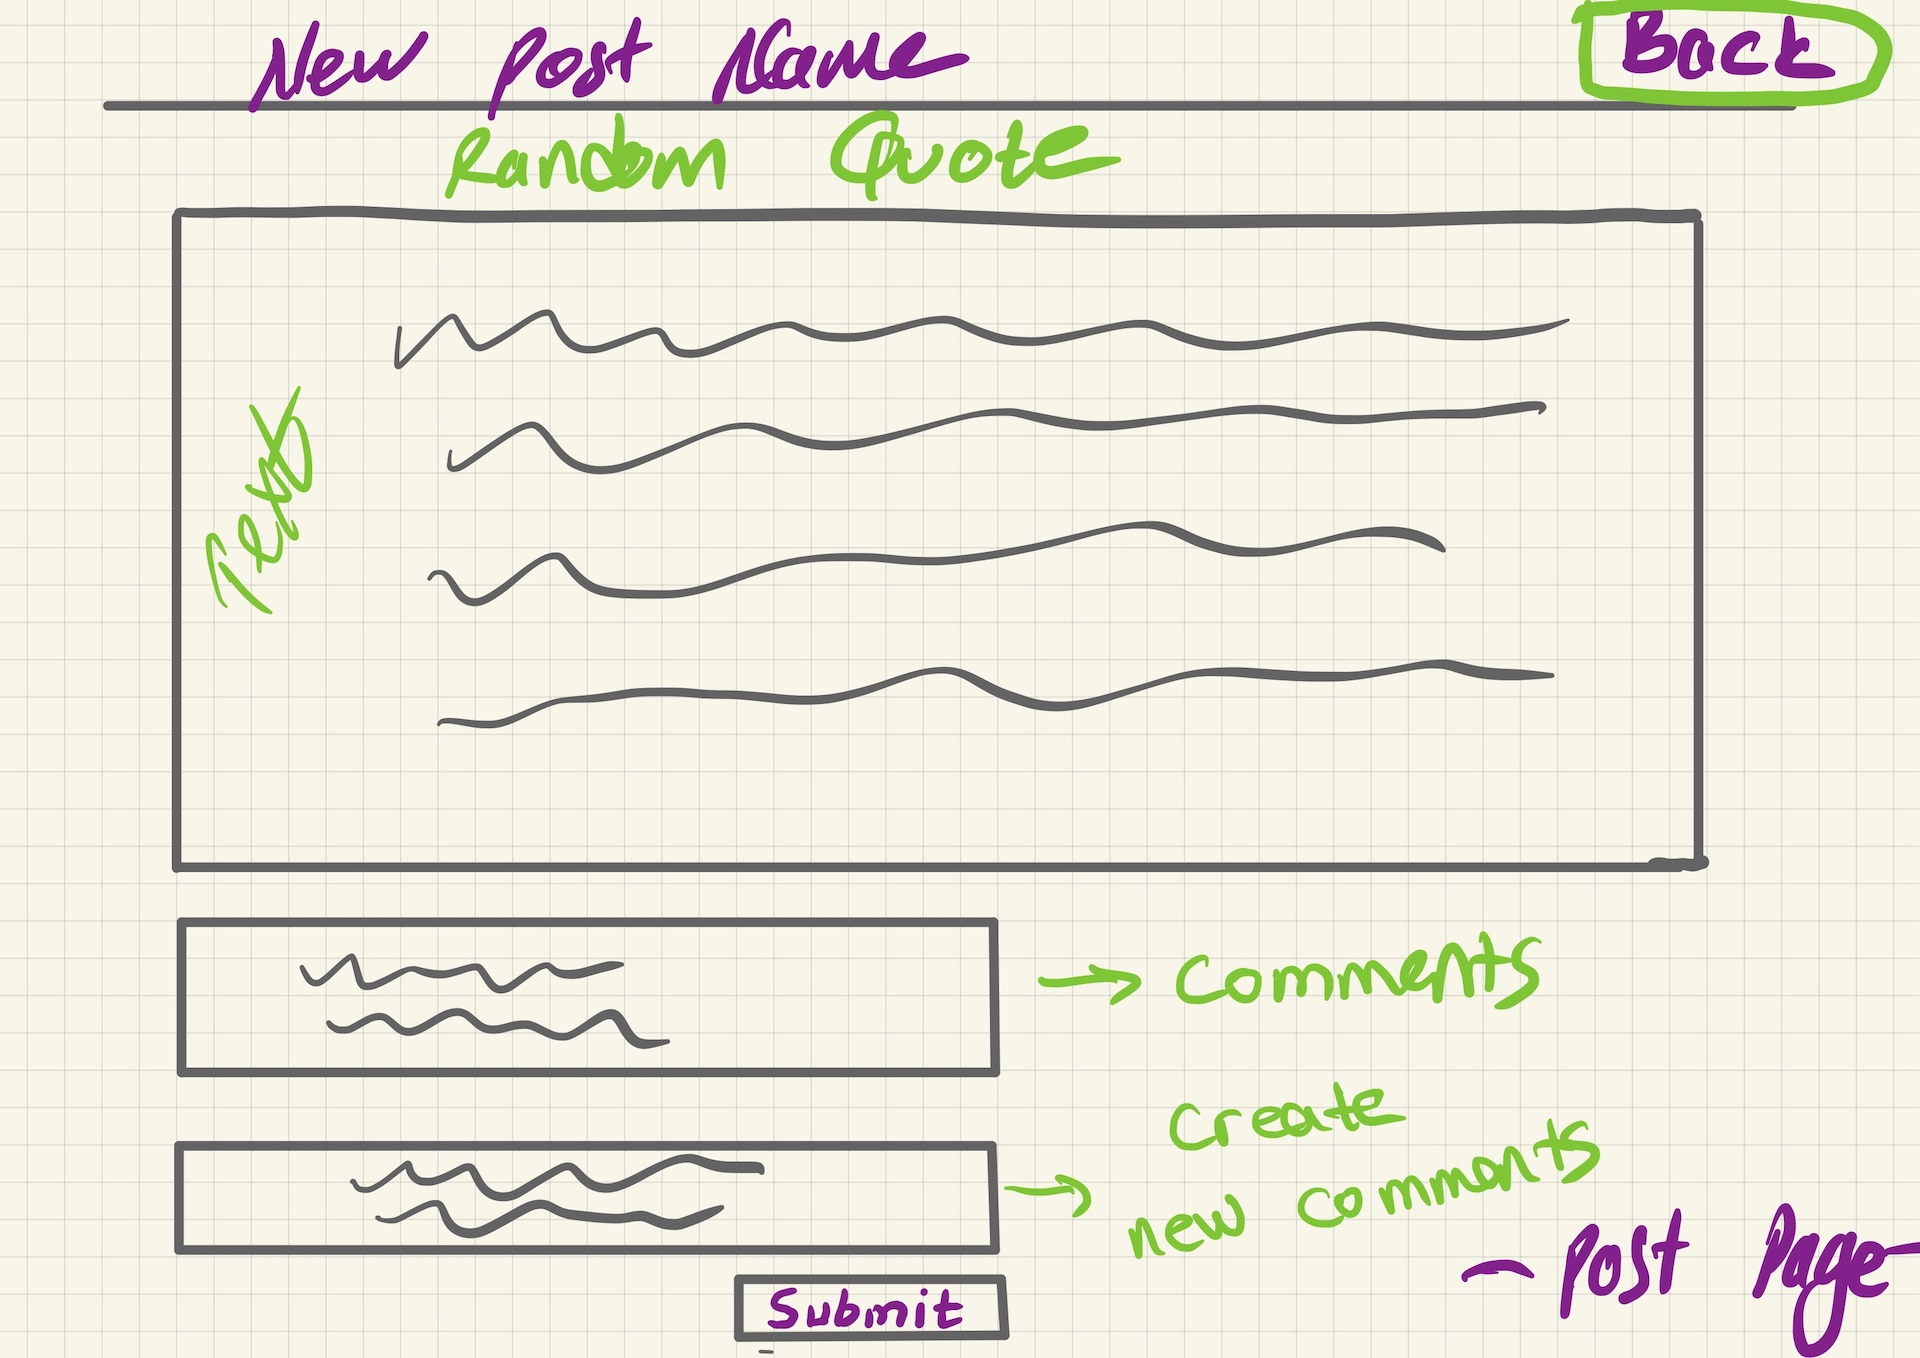 New Post Name
Back
Random Quote
Text
Comments
Create
new comments
Submit
- Post Page -